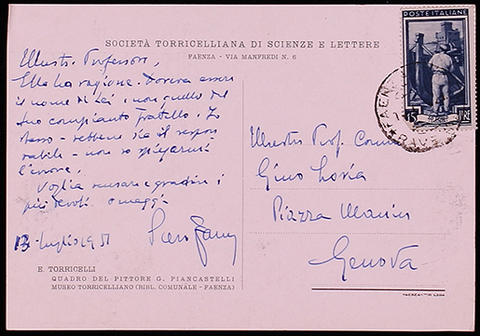 SOCIETÀ TORRICELLIANA DI SCIENZE E LETTERE
FAENZA - VIA MANFREDI N. 6
POSTE ITALIANE
Illustre Professore,
Ella ha ragione. Doveva essere
il nome di Lei, non quello del
Suo compianto fratello. Io
stesso - sebbene sia il respon-
sabile - non so spiegarmi
l'errore.
Voglia scusare e gradire i
più devoti omaggi
13 luglio 1951
Piero
Illustre Prof. Comm.
Gino Loria
Piazza Manin
Genova
E. TORRICELLI
QUADRO DEL PITTORE G. PIANCASTELLI
MUSEO TORRICELLIANO (BIBL. COMUNALE - FAENZA)